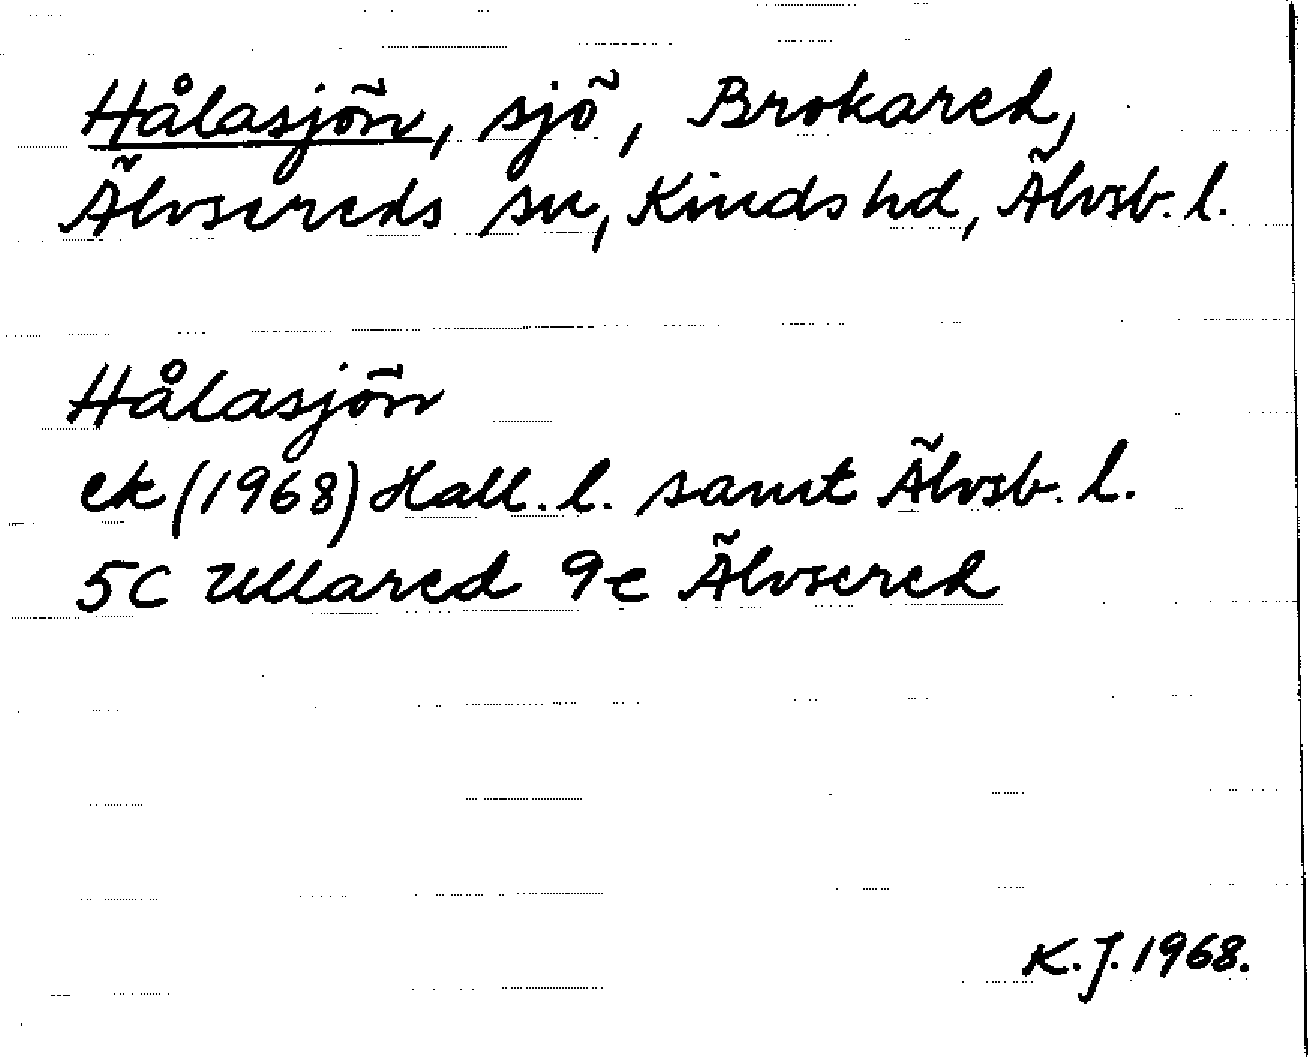 Hålasjön, sjö, Brokared,
Älvsereds sn, Kinds hd, Älvsb. l.
Hålasjön
ek (1968) Hall. l. samt Älvsb. l.
5C Ullared 9e Älvsered
K.J. 1968.